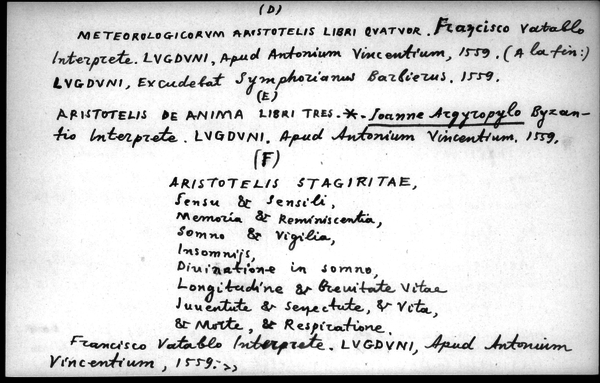 (D)
METEOROLOGICORVM ARISTOTELIS LIBRI QVATVOR. Francisco Vatablo
Interprete. LVGDVNI, Apud Antonium Vincentium, 1559. (A la fin:)
LVGDVNI, Excudebat Symphorianus Barbierus. 1559.
(E)
ARISTOTELIS DE ANIMA LIBRI TRES.*. Ioanne Argyropylo Byzan-
tio Interprete. LVGDVNI. Apud Antonium Vincentium. 1559.
(F)
ARISTOTELIS STAGIRITAE,
Sensu & Sensili,
Memoria & Reminiscentia,
Somno & Vigilia,
Insomnijs,
Diuinatione in somno,
Longitudine & breuitate Vitae
Iuuentute & Senectute, & Vita,
& Morte, & Respiratione.
Francisco Vatablo Interprete. LVGDVNI, Apud Antonium
Vincentium, 1559.>>